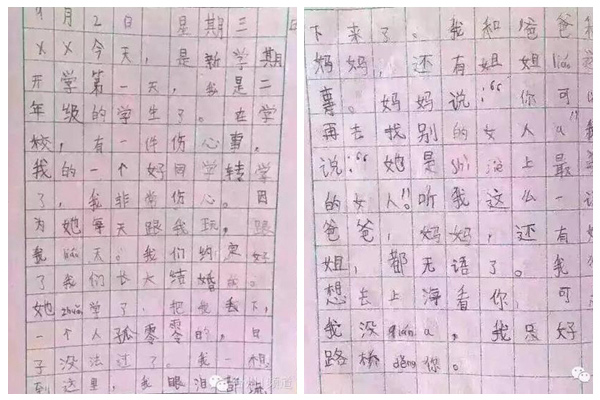 9月2日 星期三
××今天，是新学期
开学第一天，我是二
年级的学生了。在学
校，有一件伤心事，
我的一个好同学转学
了，我非常伤心。因
为她每天跟我玩，跟
我liáo天。我们约定好
了我们长大结婚的。
她zhuǎn学了，把我丢下，
一个人孤零零的，日
子没法过了。我一想
到这里，我眼泪都流
下来了。我和爸爸
妈妈，还有姐姐liáo
事。妈妈说：“你可
再去找别的女人a”
说：“她是shì jiè上最
的女人！”听我这么一
爸爸，妈妈，还有
姐，都无语了。我
想去上海看你，可
我没qián a，我只好
路桥děng你。